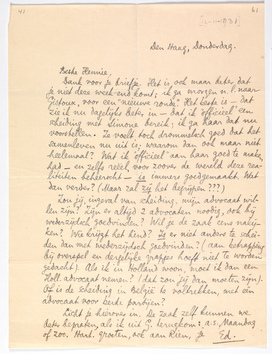 41
61
Den Haag, Donderdag.
Beste Hennie,
Dank voor je briefje. Het is ook maar beter, dat
je niet deze week-end komt; ik ga morgen n.l. naar
Gistoux, voor een "nieuwe ronde". Het beste is – dat
zie ik nu dagelijks beter in – dat ik officieel een
scheiding met Simone bereik; ik ga haar dat nu
voorstellen. Ze voelt toch drommelsch goed dat het
samenleven nu uit is; waarom dan ook maar niet
heelemaal? Wat ik officieel aan haar goed te maken
had – en zelfs reëel voor zoover de wereld deze
liteiten beheerscht – is immers goedgemaakt. Wat
dan verder? (Maar zal zij het begrijpen???)
Zou jij, ingeval van scheiding, mijn advocaat wil-
len zijn? Zijn er altijd 2 advocaten noodig, ook bij
wederzijdsch goedvinden? Wil je de zaak eens
Wie krijgt het kind? Zoo is er niet anders te schei-
den dan met wederzijdsch goedvinden? (aan betrapping
bij overspel en dergelijke grapjes hoeft niet te worden
gedacht). Als ik in Holland woon, moet ik dan een
Holl. advocaat nemen? (dat zou jij dan moeten zijn).
Of is de scheiding in België te voltrekken, met een
advocaat voor beide partijen?
Licht je hierover in. De zaak zelf kunnen we
bepraten, als ik uit G. terugkom: a.s. Maandag
of zoo. Hart. groeten, ook aan Rien, je